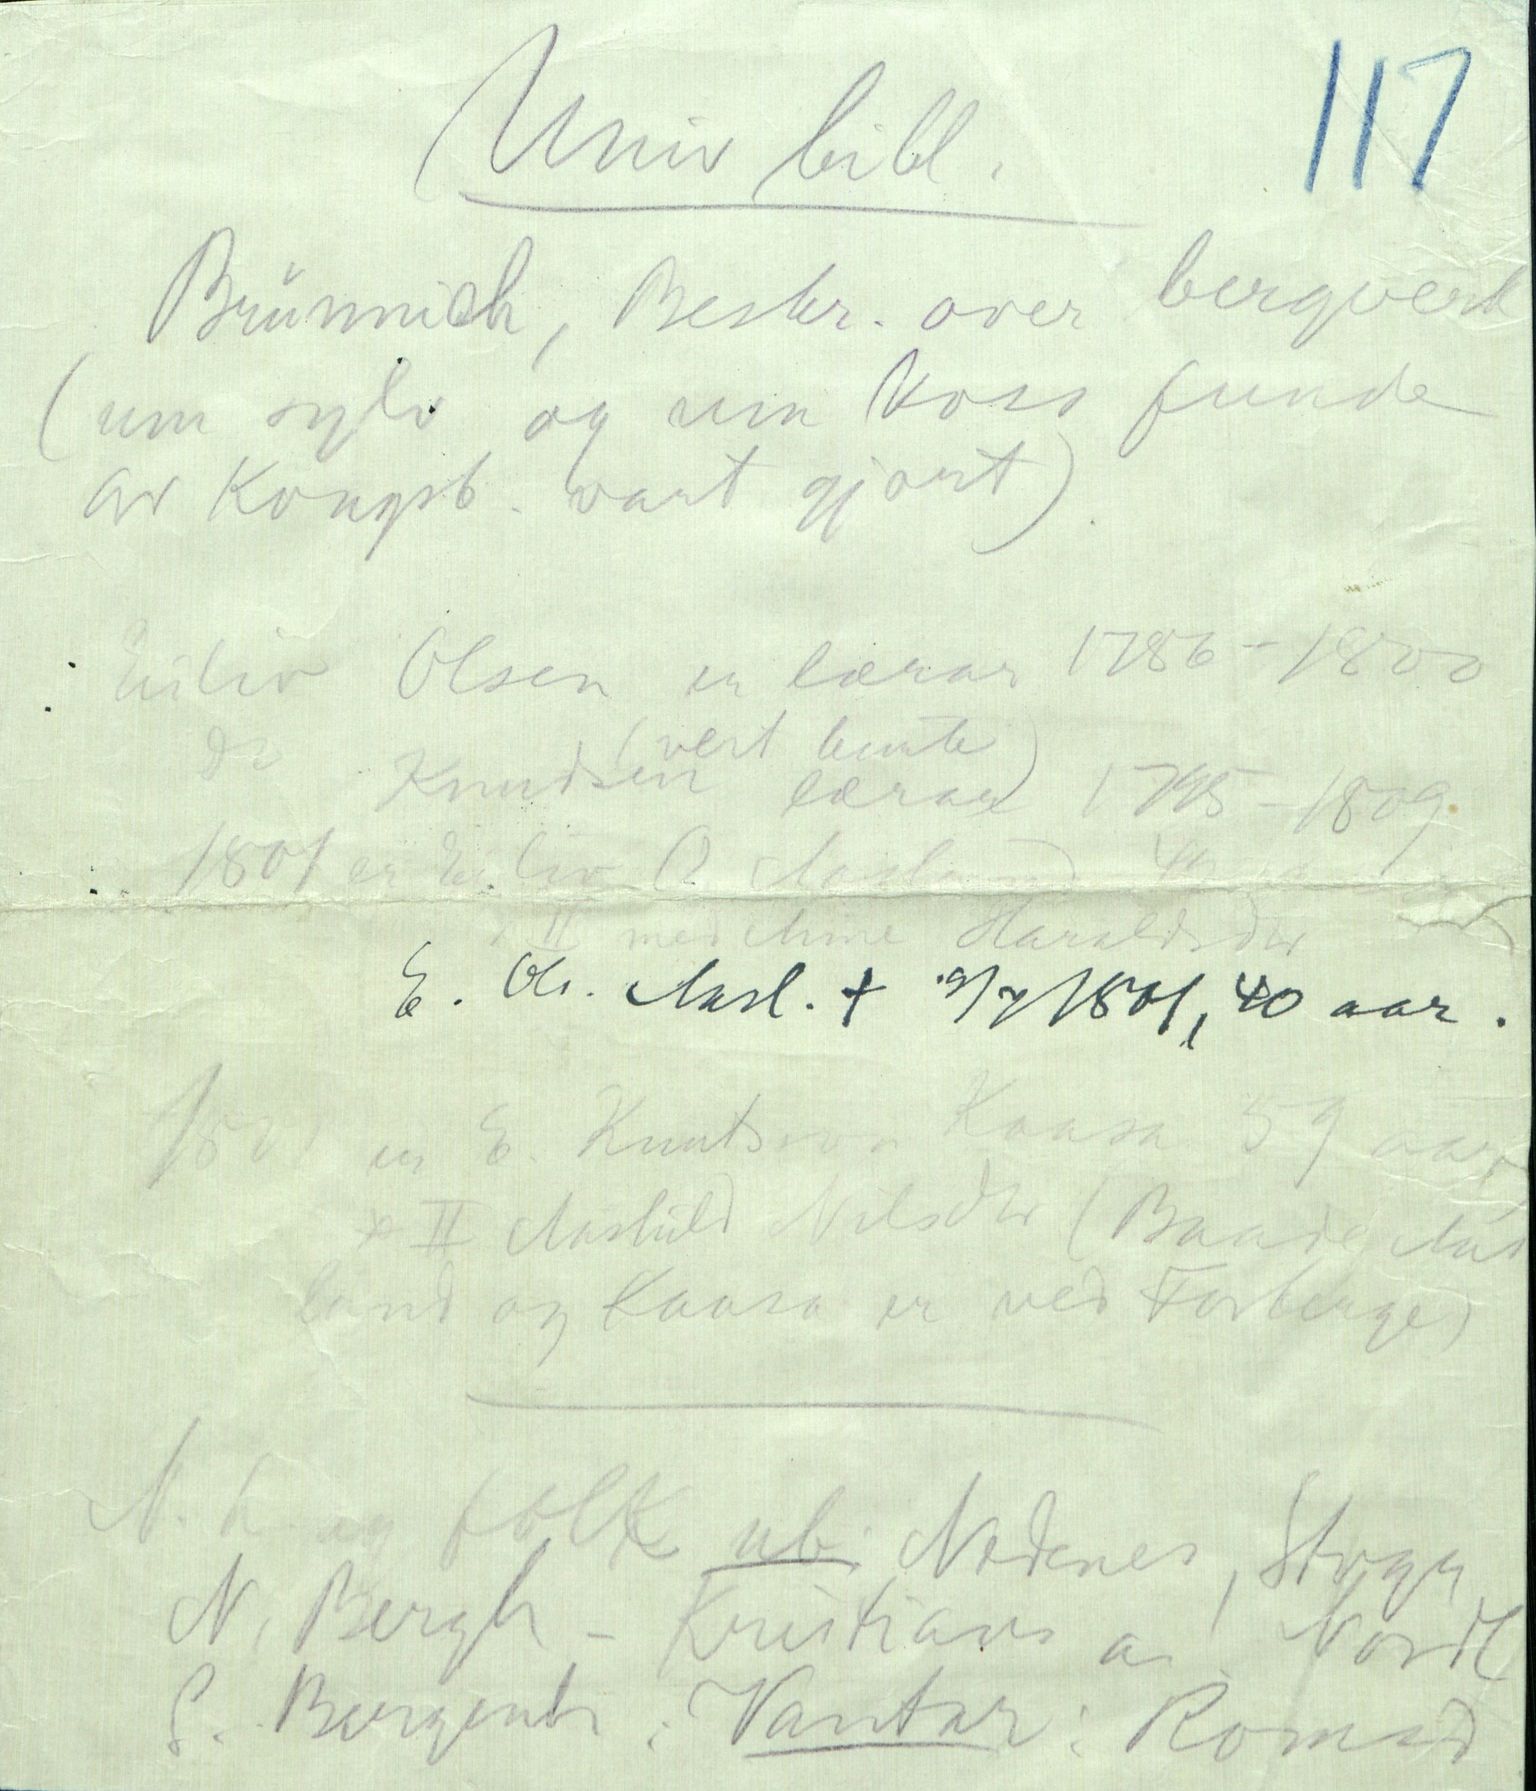 117
Univ bibl.
Brünnich, Beskr. over bergverk
(um sylv og um Voss funde
av Kongsb. vart gjort).
Eiliv Olsen er lærar 1786-1800
(vert burte)
do Knudsen lærar 1795-1809
1801 er Eiliv O
II med Anne Haraldsdtr
E. Ols. Aasl. + 9/7 1801, 40 aar.
er E. Knutson Kaasa 59 aar
x II Aashild Nilsdtr (Baade Aas
land og Kaasa er ved Forberge)
N. L. og folk ub. Nedenes,
N. Bergh - Kristians a. Nordl
S. Bergenh : Vantar: Romsd